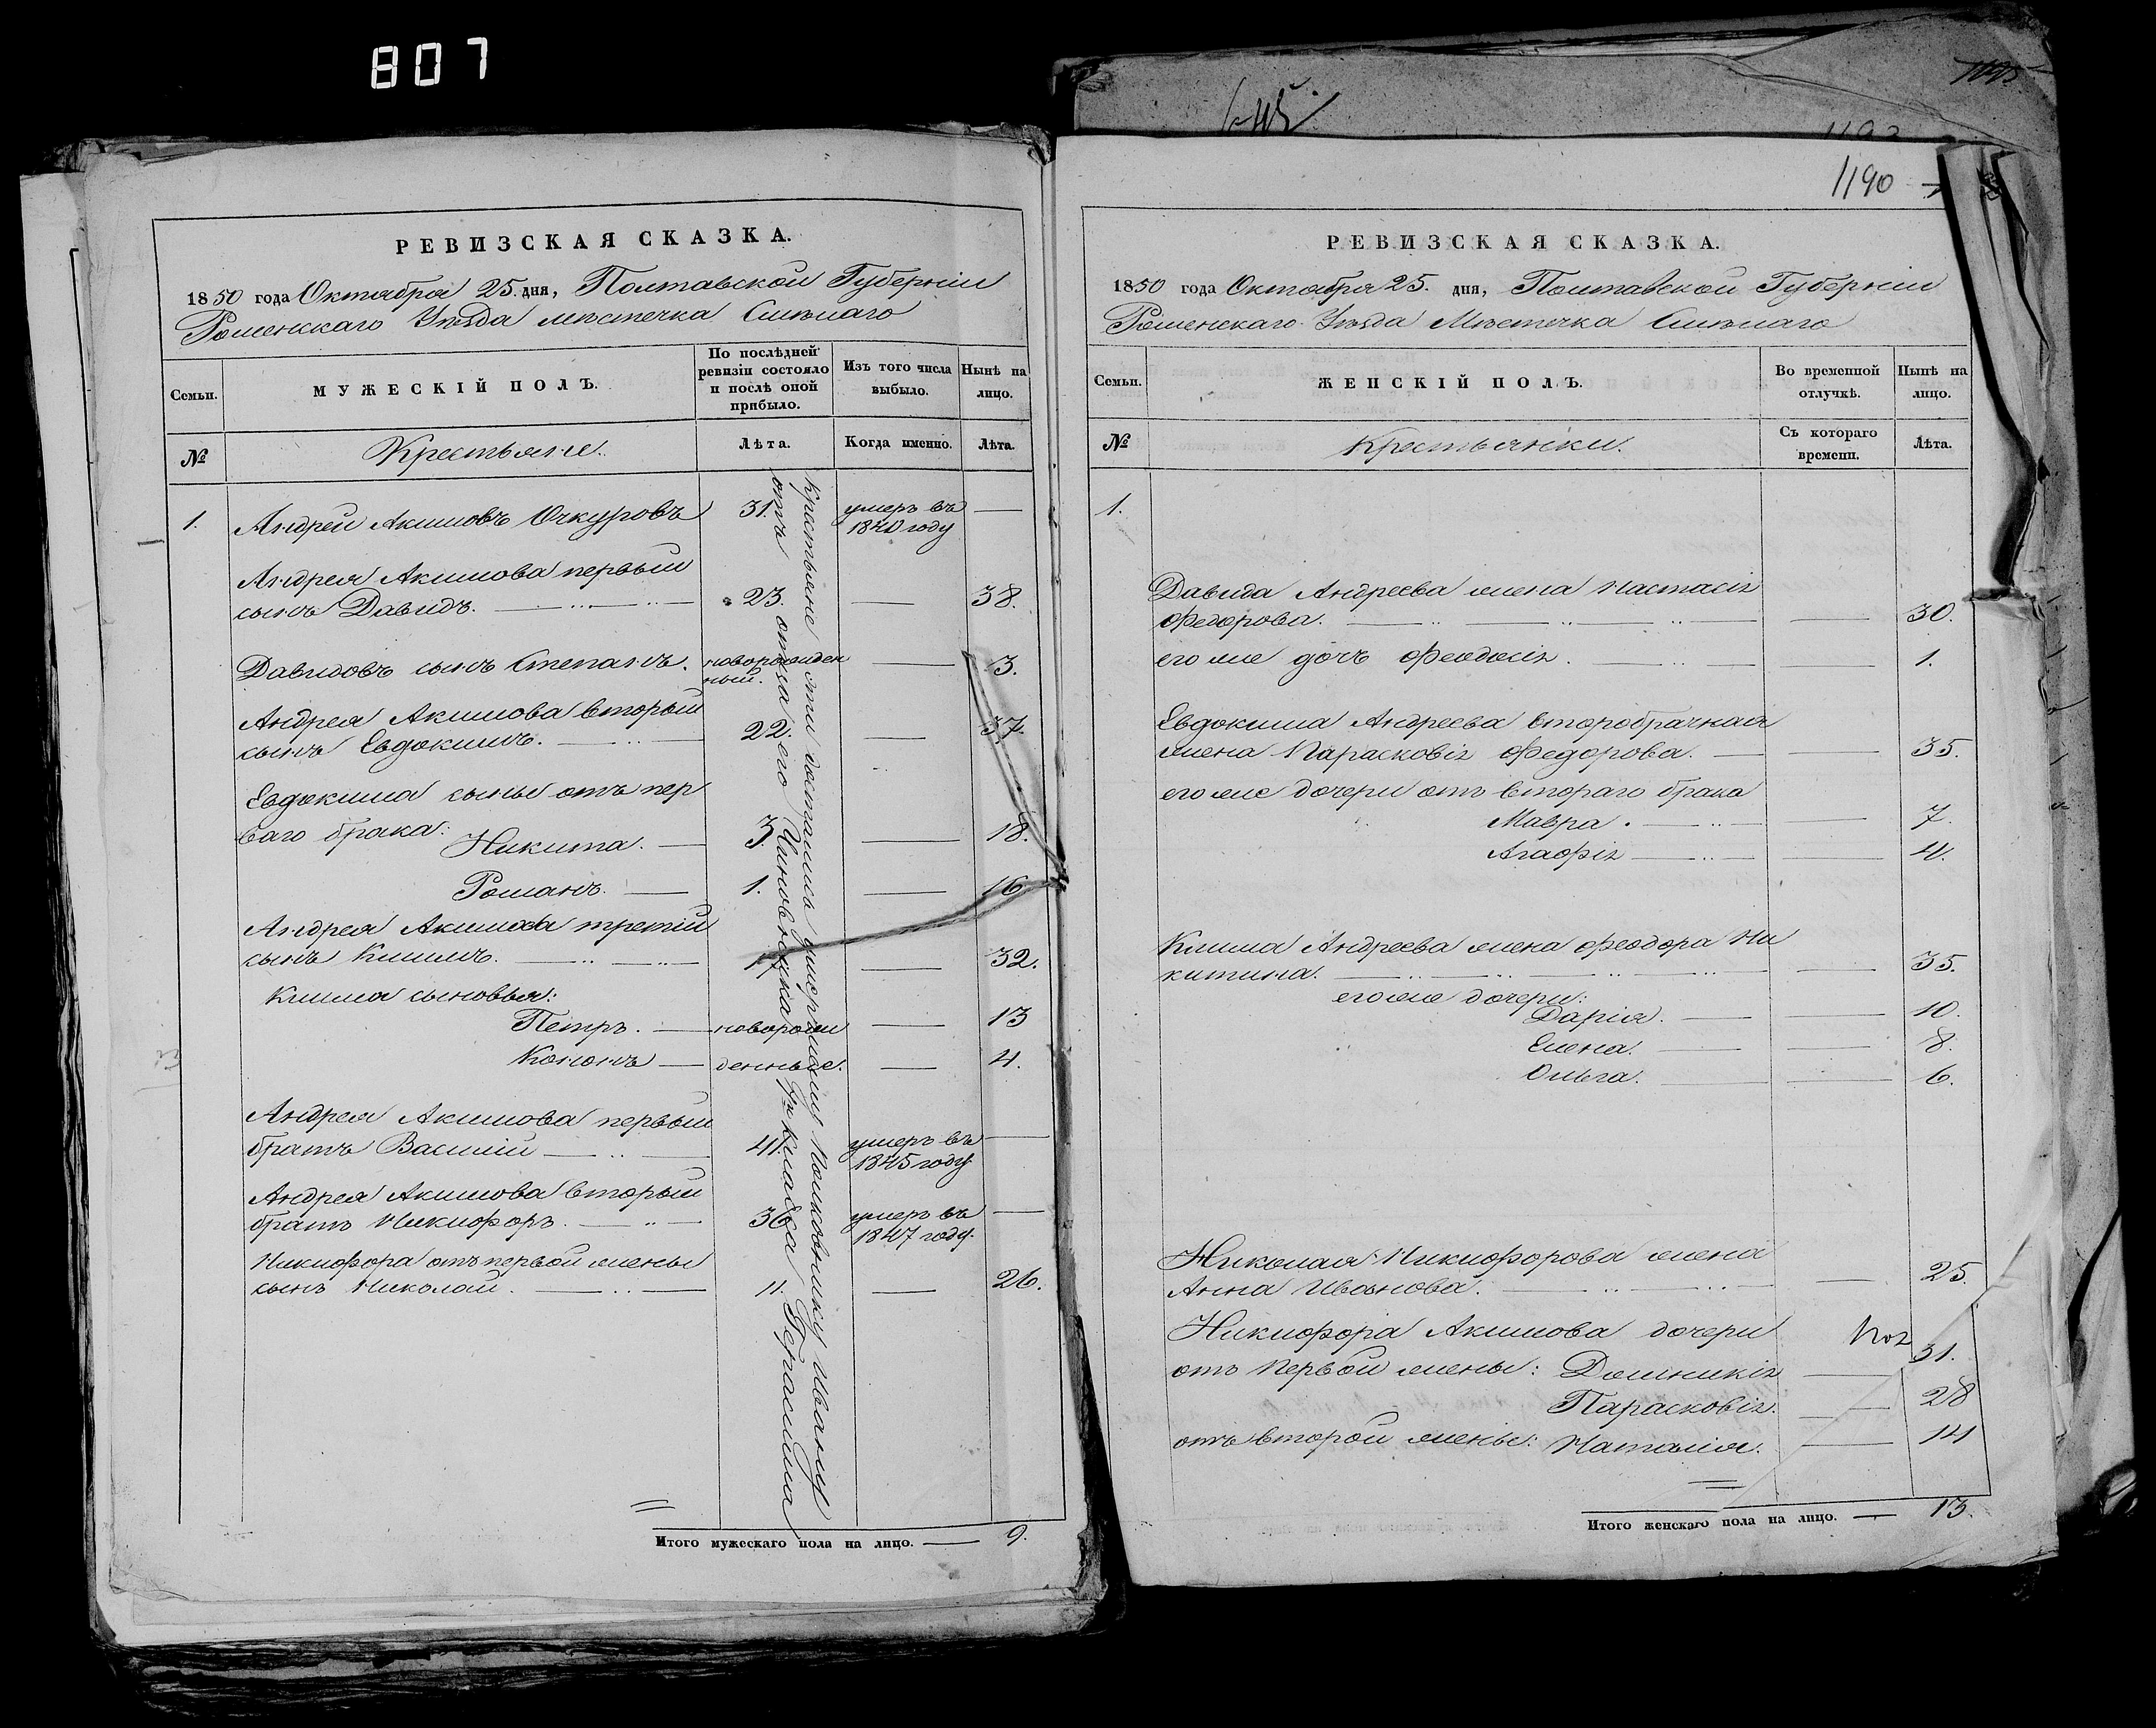 807
1190
РЕВИЗСКАЯ СКАЗКА.
1850 года Октября 25. дня, Полтавской Губерніи
Роменскаго Уѣзда мѣстечка Смѣлаго
Семьи.
МУЖЕСКІЙ ПОЛЪ.
По послѣдней ревизіи состояло и послѣ оной прибыло.
Изъ того числа выбыло.
Нынѣ на лицо.
№
Крестьяне.
Лѣта.
Когда именно.
Лѣта.
1. Андрей Акимовъ Очкуровъ 31. умеръ въ 1840 году —
Андрея Акимова первый
сынъ Давидъ. 23. — 38.
Давидовъ сынъ Степанъ. новорожден ный. — 3.
Андрея Акимова вторый
сынъ Евдокимъ. 22. — 37.
Евдокима сыны отъ пер
ваго брака:
Никита. — 3 — 18.
Романъ. — 1. — 16
Андрея Акимова третій
сынъ Климъ. 17 — 32.
Клима сыновья:
Петръ. — новорож — 13
Кононъ — денные. — 4.
Андрея Акимова первый
братъ Василій 41. умеръ въ 1845 году —
Андрея Акимова вторый
братъ Никифоръ. 36 умеръ въ 1847 году. —
Никифора отъ первой жены
сынъ Николай. 11. — 26.
Крестьяне эти достались умершему Полковнику Ивану
отъ отца его Чиновника Герасима
Итого мужескаго пола на лицо. — 9.
РЕВИЗСКАЯ СКАЗКА.
1850 года Октября 25. дня, Полтавской Губерніи
Роменскаго Уѣзда Мѣстечка Смѣлаго
Семьи.
ЖЕНСКІЙ ПОЛЪ.
Во временной отлучкѣ.
Нынѣ на лицо.
№
Крестьянки.
Съ котораго времени.
Лѣта.
1.
Давида Андреева жена Настасія
Федорова. — 30.
его же дочь Феодосія. — 1.
Евдокима Андреева второбрачная
жена Парасковія Федорова. — 35.
его же дочери отъ втораго брака
Мавра. — 7.
Агафія — 4.
Клима Андреева жена Феодора Ни
китина. — 35.
его же дочери:
Дарія. — 10.
Елена. — 8.
Ольга. — 6.
Николая Никифорова жена
Анна Иванова. — 25.
Никифора Акимова дочери
отъ первой жены: Домникія — 31.
Парасковія. — 28
отъ второй жены: Наталія. — 14
Итого женскаго пола на лицо. — 13.